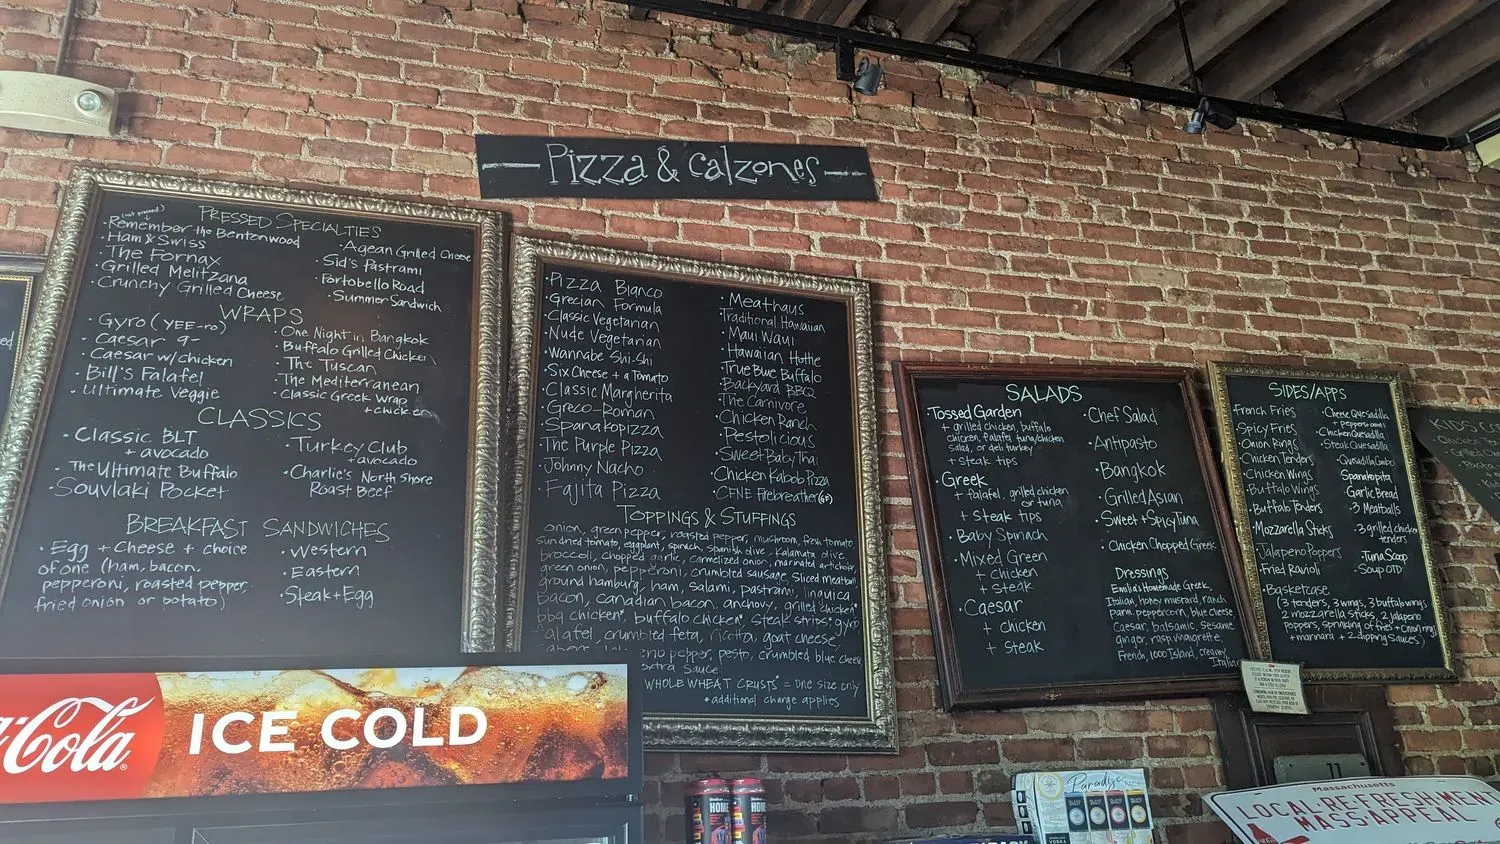 Pizza & Calzones
PRESSED SPECIALTIES
(not pressed)
· Remember the Bentonwood
· Ham & Swiss
· The Fornax
· Grilled Melitzana
· Crunchy Grilled Cheese
· Agean Grilled Cheese
· Sid's Pastrami
· Portobello Road
· Summer Sandwich
WRAPS
· Gyro (YEE-ro)
· Caesar
· Caesar w/chicken
· Bill's Falafel
· Ultimate Veggie
· One Night in Bangkok
· Buffalo Grilled Chicken
· The Tuscan
· The Mediterranean
· Classic Greek Wrap
+ chicken
CLASSICS
· Classic BLT
+ avocado
· The Ultimate Buffalo
· Souvlaki Pocket
· Turkey Club
+ avocado
· Charlie's North Shore
Roast Beef
BREAKFAST SANDWICHES
· Egg + Cheese + choice
of one (ham, bacon,
pepperoni, roasted pepper,
fried onion or potato)
· Western
· Eastern
· Steak + Egg
· Pizza Bianco
· Grecian Formula
· Classic Vegetarian
· Nude Vegetarian
· Wannabe Shi-Shi
· Six Cheese + a Tomato
· Classic Margherita
· Greco-Roman
· Spanakopizza
· The Purple Pizza
· Johnny Nacho
· Fajita Pizza
· Meathaus
· Traditional Hawaiian
· Maui Waui
· Hawaiian Hottie
· True Blue Buffalo
· Backyard BBQ
· The Carnivore
· Chicken Ranch
· Pestolicious
· Sweet Baby Thai
· Chicken Kabob Pizza
· CFNE Firebreather (GF)
TOPPINGS & STUFFINGS
onion, green pepper, roasted pepper, mushroom, fresh tomato
sundried tomato, eggplant, spinach, spanish olive, kalamata olive
broccoli, chopped garlic, carmelized onion, marinated artichoke,
green onion, pepperoni, crumbled sausage, sliced meatball
ground hamburg, ham, salami, pastrami, linguica
bacon, canadian bacon, anchovy, grilled chicken*
bbq chicken*, buffalo chicken*, steak strips*, gyro
falafel, crumbled feta, ricotta, goat cheese
pepper, pesto, crumbled blue cheese
extra sauce
WHOLE WHEAT CRUSTS* = one size only
*additional charge applies
SALADS
· Tossed Garden
+ grilled chicken, buffalo
chicken, falafel, tuna/chicken
salad, or deli turkey
+ steak tips
· Greek
+ falafel, grilled chicken
or tuna
+ steak tips
· Baby Spinach
· Mixed Green
+ chicken
+ steak
· Caesar
+ chicken
+ steak
· Chef Salad
· Antipasto
· Bangkok
· Grilled Asian
· Sweet + Spicy Tuna
· Chicken Chopped Greek
Dressings
Emilia's Homemade Greek,
Italian, honey mustard, ranch
Parm. peppercorn, blue cheese
Caesar, balsamic, sesame
ginger, rasp. vinaigrette,
French, 1000 Island, creamy
Italian
SIDES/APPS
French Fries
Spicy Fries
Onion Rings
Chicken Tenders
Chicken Wings
Buffalo Wings
Buffalo Tenders
Mozzarella Sticks
Jalapeno Poppers
Fried Ravioli
Cheese Quesadilla
+ peppers onions
Chicken Quesadilla
Steak Quesadilla
Quesadilla Combo
Spanakopita
Garlic Bread
3 Meatballs
3 grilled chicken
tenders
Tuna Scoop
Soup OTD
· Basketcase
(3 tenders, 3 wings, 3 buffalo wings
2 mozzarella sticks, 2 jalapeno
poppers, sprinkling of fries + onion rings
+ marinara + 2 dipping sauces)
KIDS
Coca-Cola
ICE COLD
HOME
HOME
Paradise
11
Massachusetts
LOCAL-RE-FRESHMENT
MASS-APPEAL